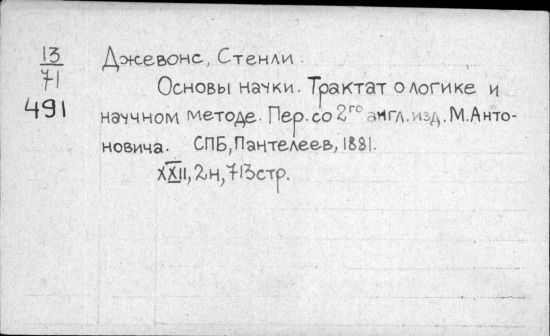 13
71
491
Джевонс, Стенли.
Основы науки. Трактат о логике и
научном методе. Пер. со 2го англ. изд. М. Анто-
новича. СПБ, Пантелеев, 1881.
XXII, 2н, 713 стр.